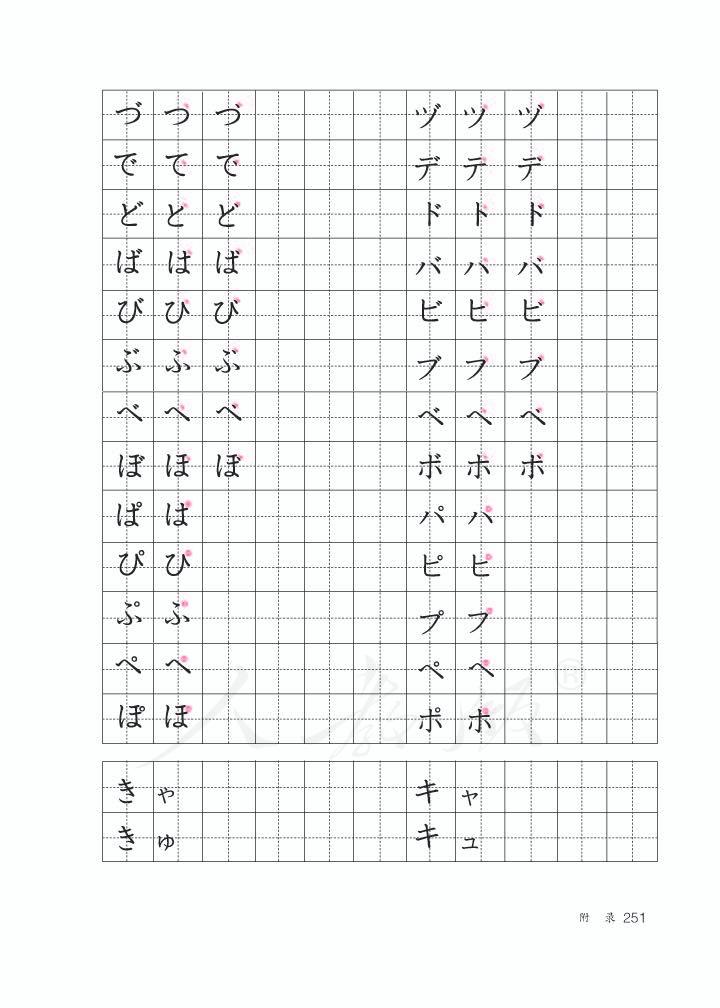 づ つ づ ヅ ツ ヅ
で て で デ テ デ
ど と ど ド ト ド
ば は ば バ ハ バ
び ひ び ビ ヒ ビ
ぶ ふ ぶ ブ フ ブ
べ へ べ ベ ヘ ベ
ぼ ほ ぼ ボ ホ ボ
ぱ は パ ハ
ぴ ひ ピ ヒ
ぷ ふ プ フ
ぺ へ ペ ヘ
ぽ ほ ポ ホ
人教版®
き ゃ キ ャ
き ゅ キ ュ
附 录 251